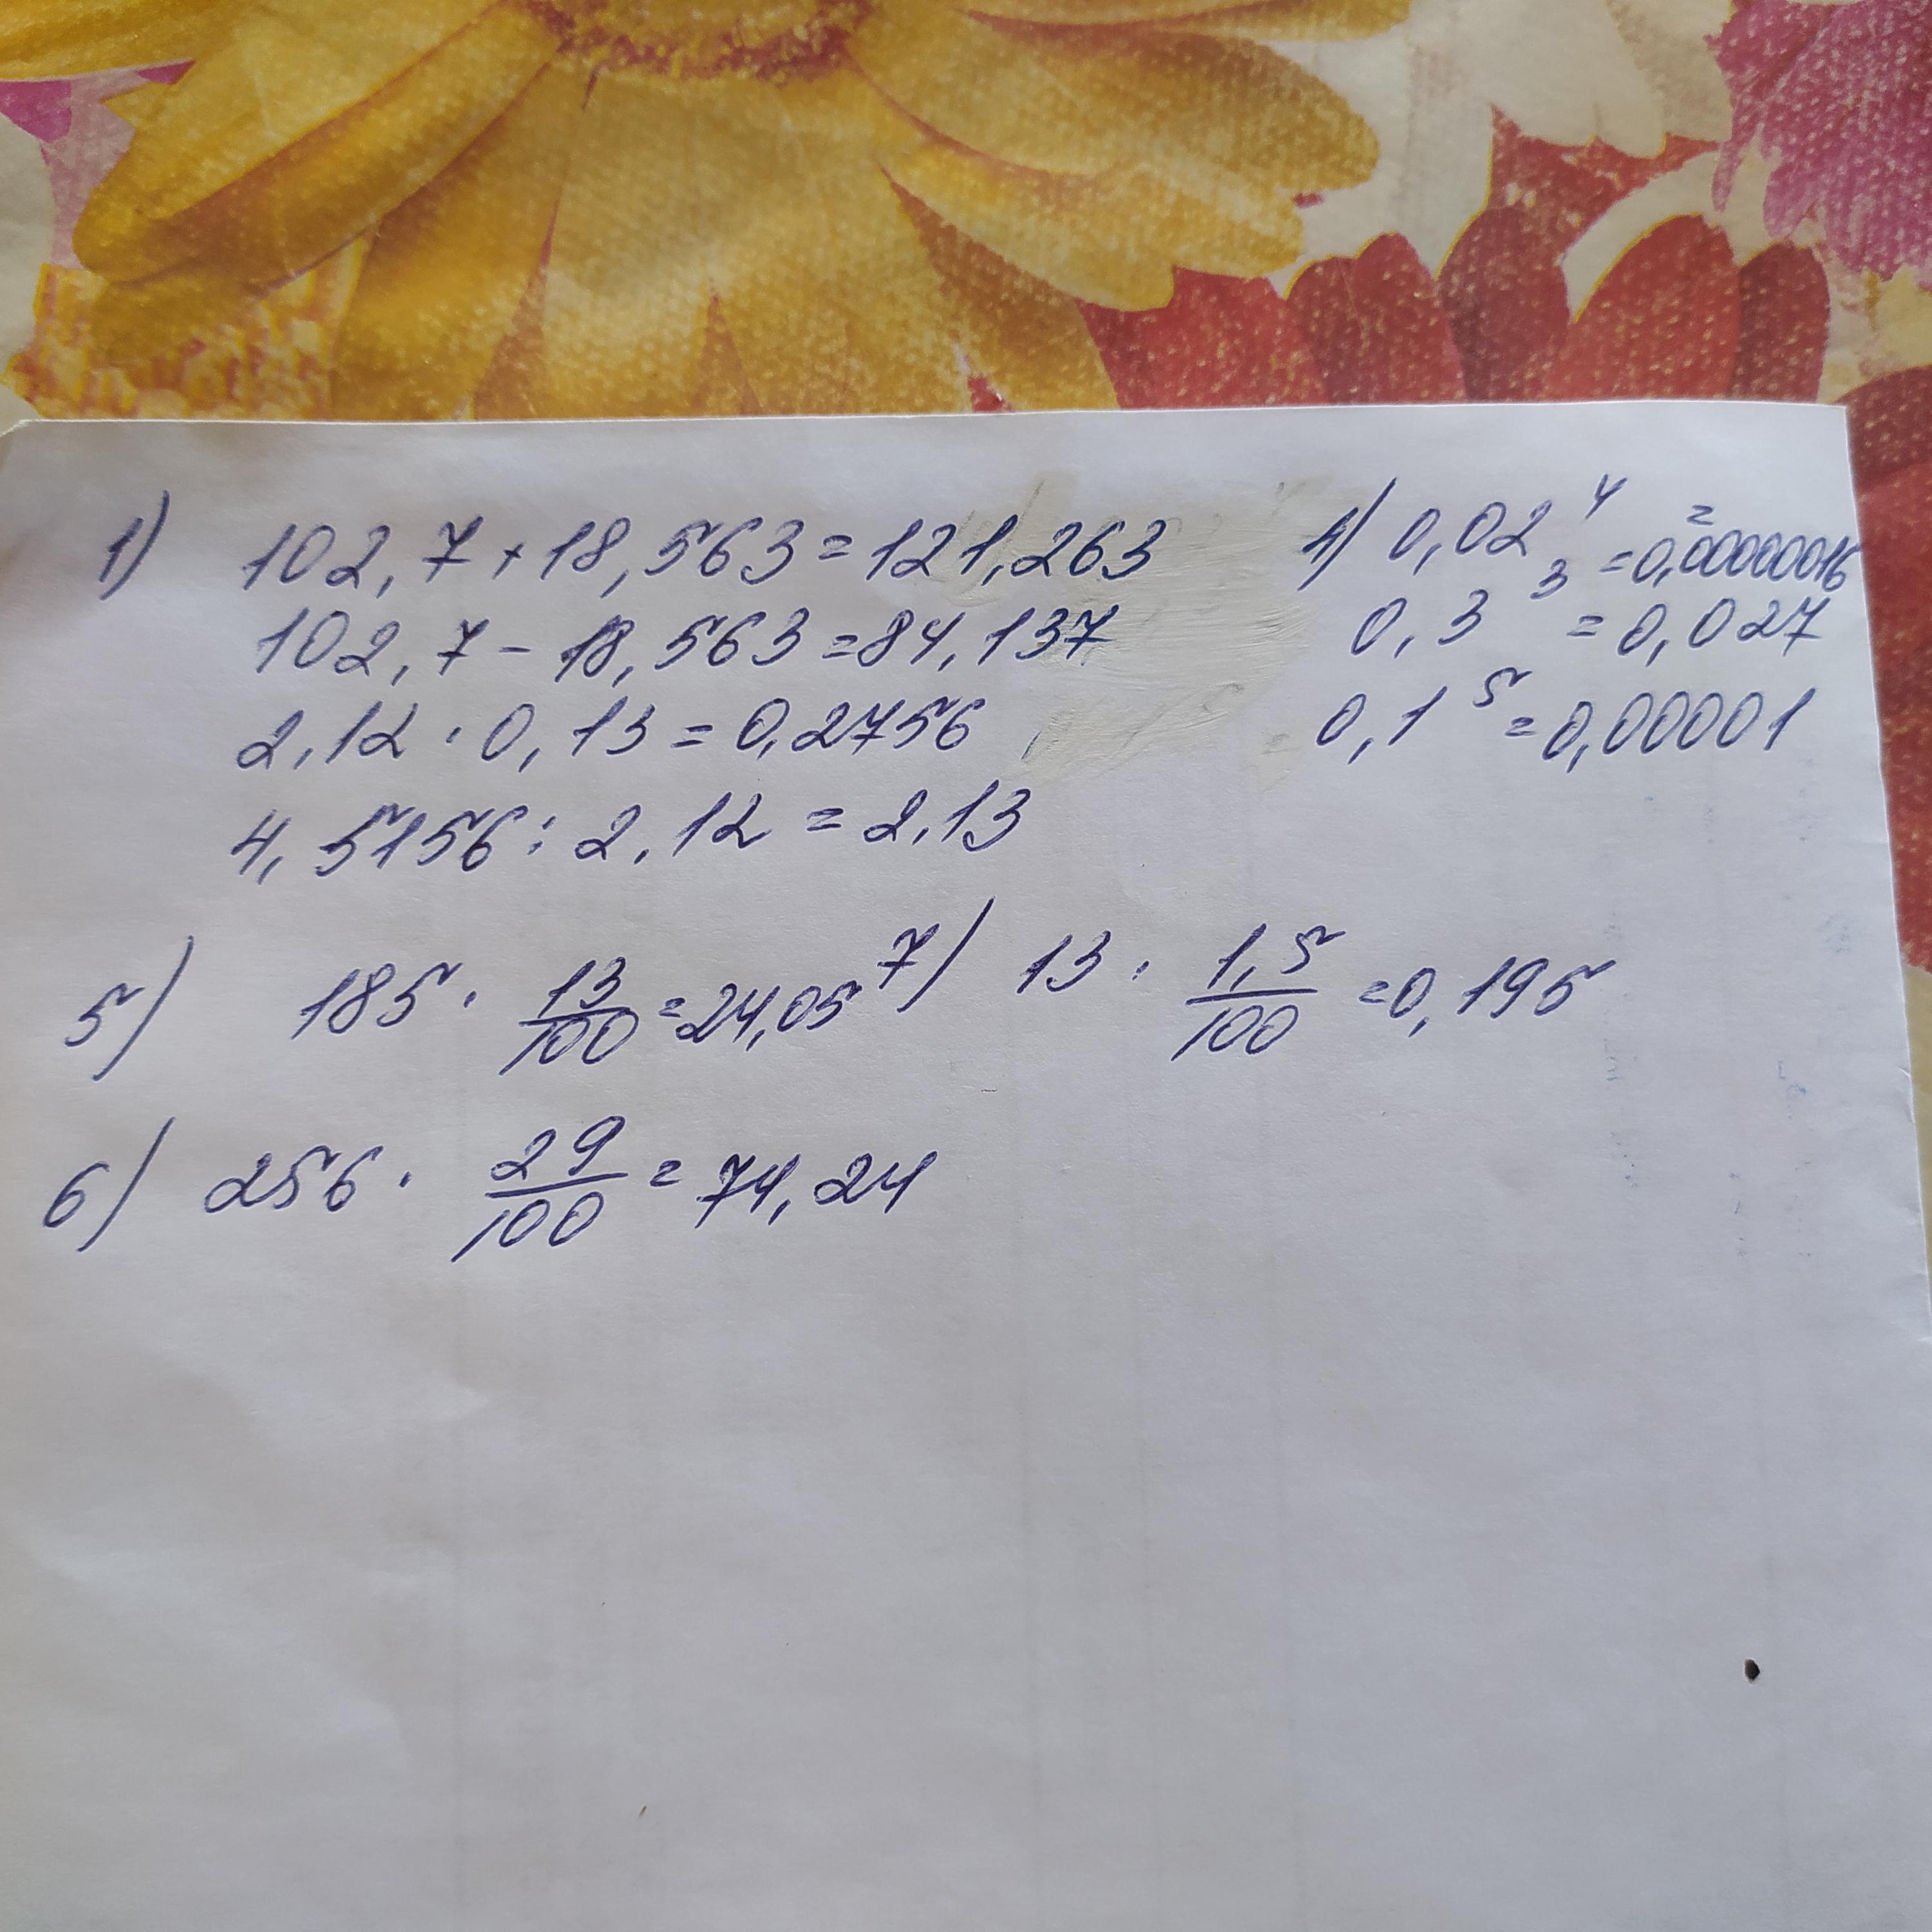 1) 102,7+18,563=121,263
102,7-18,563=84,137
2,12·0,13=0,2756
4,5156:2,12=2,13
4) 0,02⁴ = =0,00000016
0,3³=0,027
0,1⁵=0,00001
5) 185·13/100=24,05
7) 13·1,5/100=0,195
6) 256·29/100=74,24